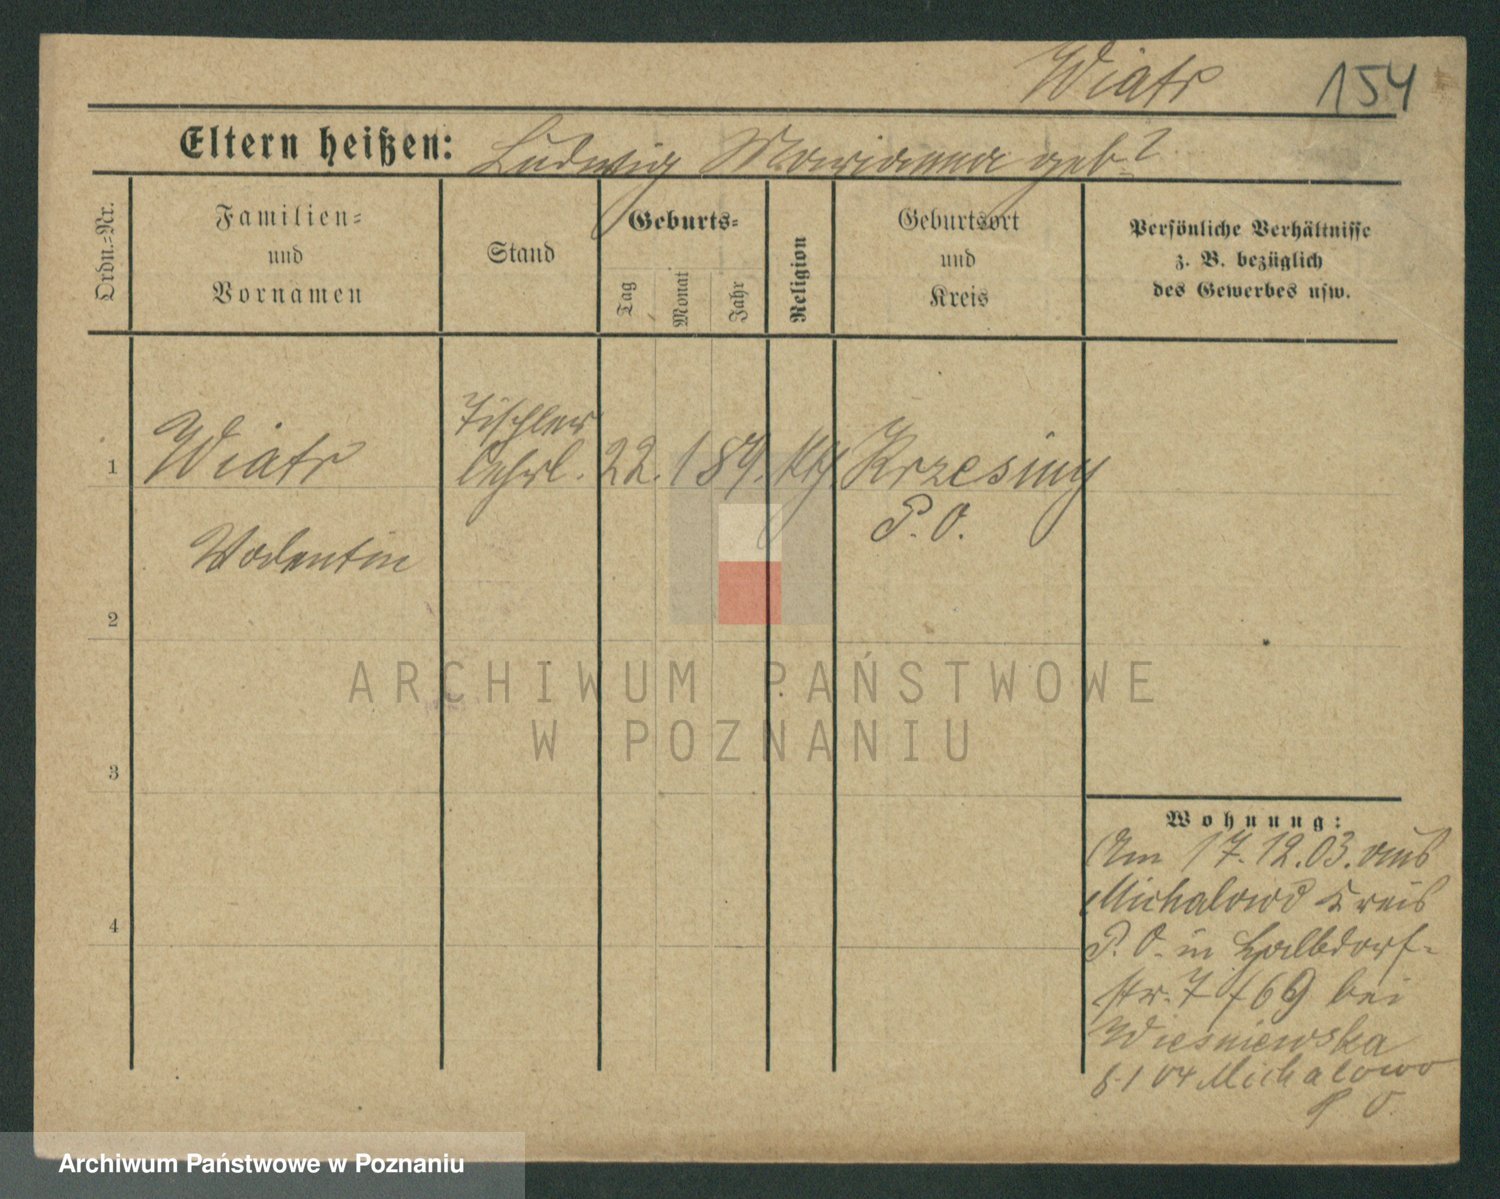 Wiatr 154
Eltern heißen: Ludwig Marianna geb ?
Ordn.=Nr.
Familien=
und
Vornamen
Stand
Geburts=
Tag
Monat
Jahr
Religion
Geburtsort
und
Kreis
Persönliche Verhältnisse
z. B. bezüglich
des Gewerbes usw.
1
Wiatr
Valentin
Tischler
lehrl.
22. 1 89. kth
Krzesiny
P. O.
2
3
4
Wohnung:
Am 17. 12. 03. aus
Michalowo Kreis
P. O. in Halbdorf=
str. 7 bei
Wiesniewska
8. 1 04 Michalowo
P O.
ARCHIWUM PAŃSTWOWE
W POZNANIU
Archiwum Państwowe w Poznaniu